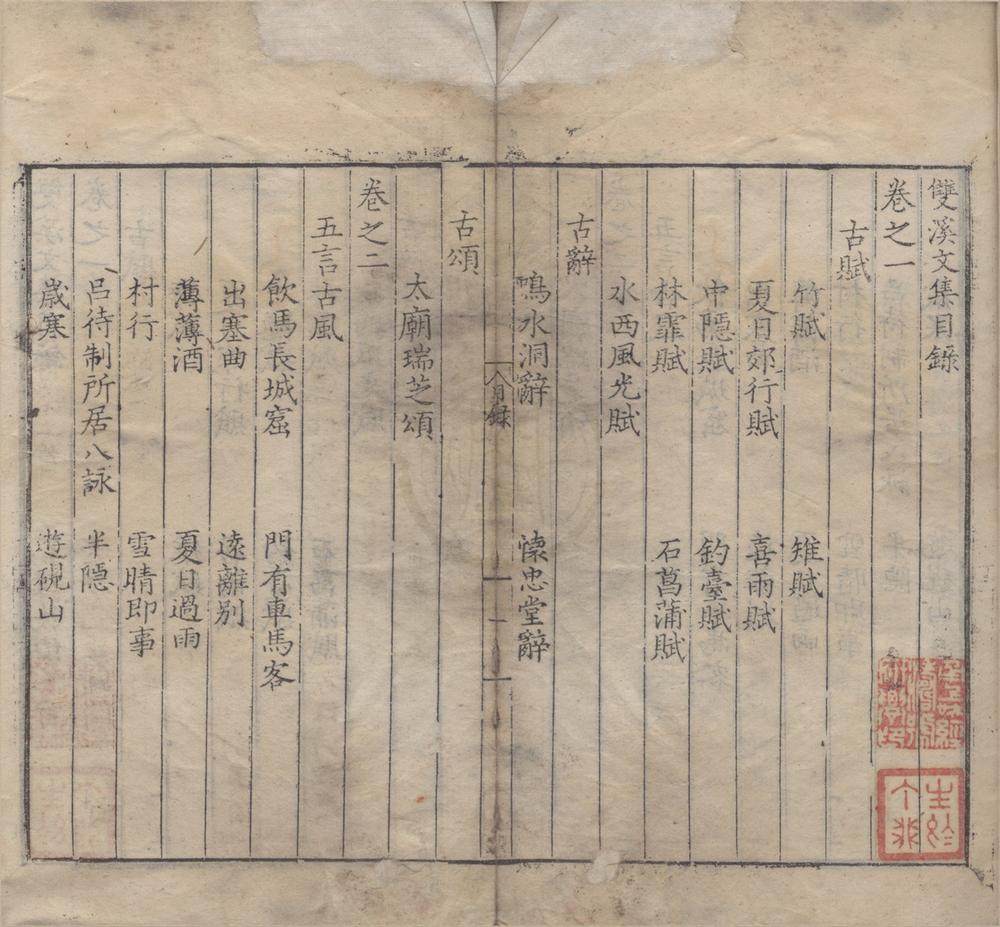 雙溪文集目錄
卷之一
古賦
竹賦 雉賦
夏日郊行賦 喜雨賦
中隱賦 釣臺賦
林霏賦 石菖蒲賦
水西風光賦
古辭
鳴水洞辭 懷忠堂辭
目錄 一
古頌
太廟瑞芝頌
卷之二
五言古風
飲馬長城窟 門有車馬客
出塞曲 遠離別
薄薄酒 夏日過雨
村行 雪晴即事
呂待制所居八詠 半隱
歲寒 遊硯山